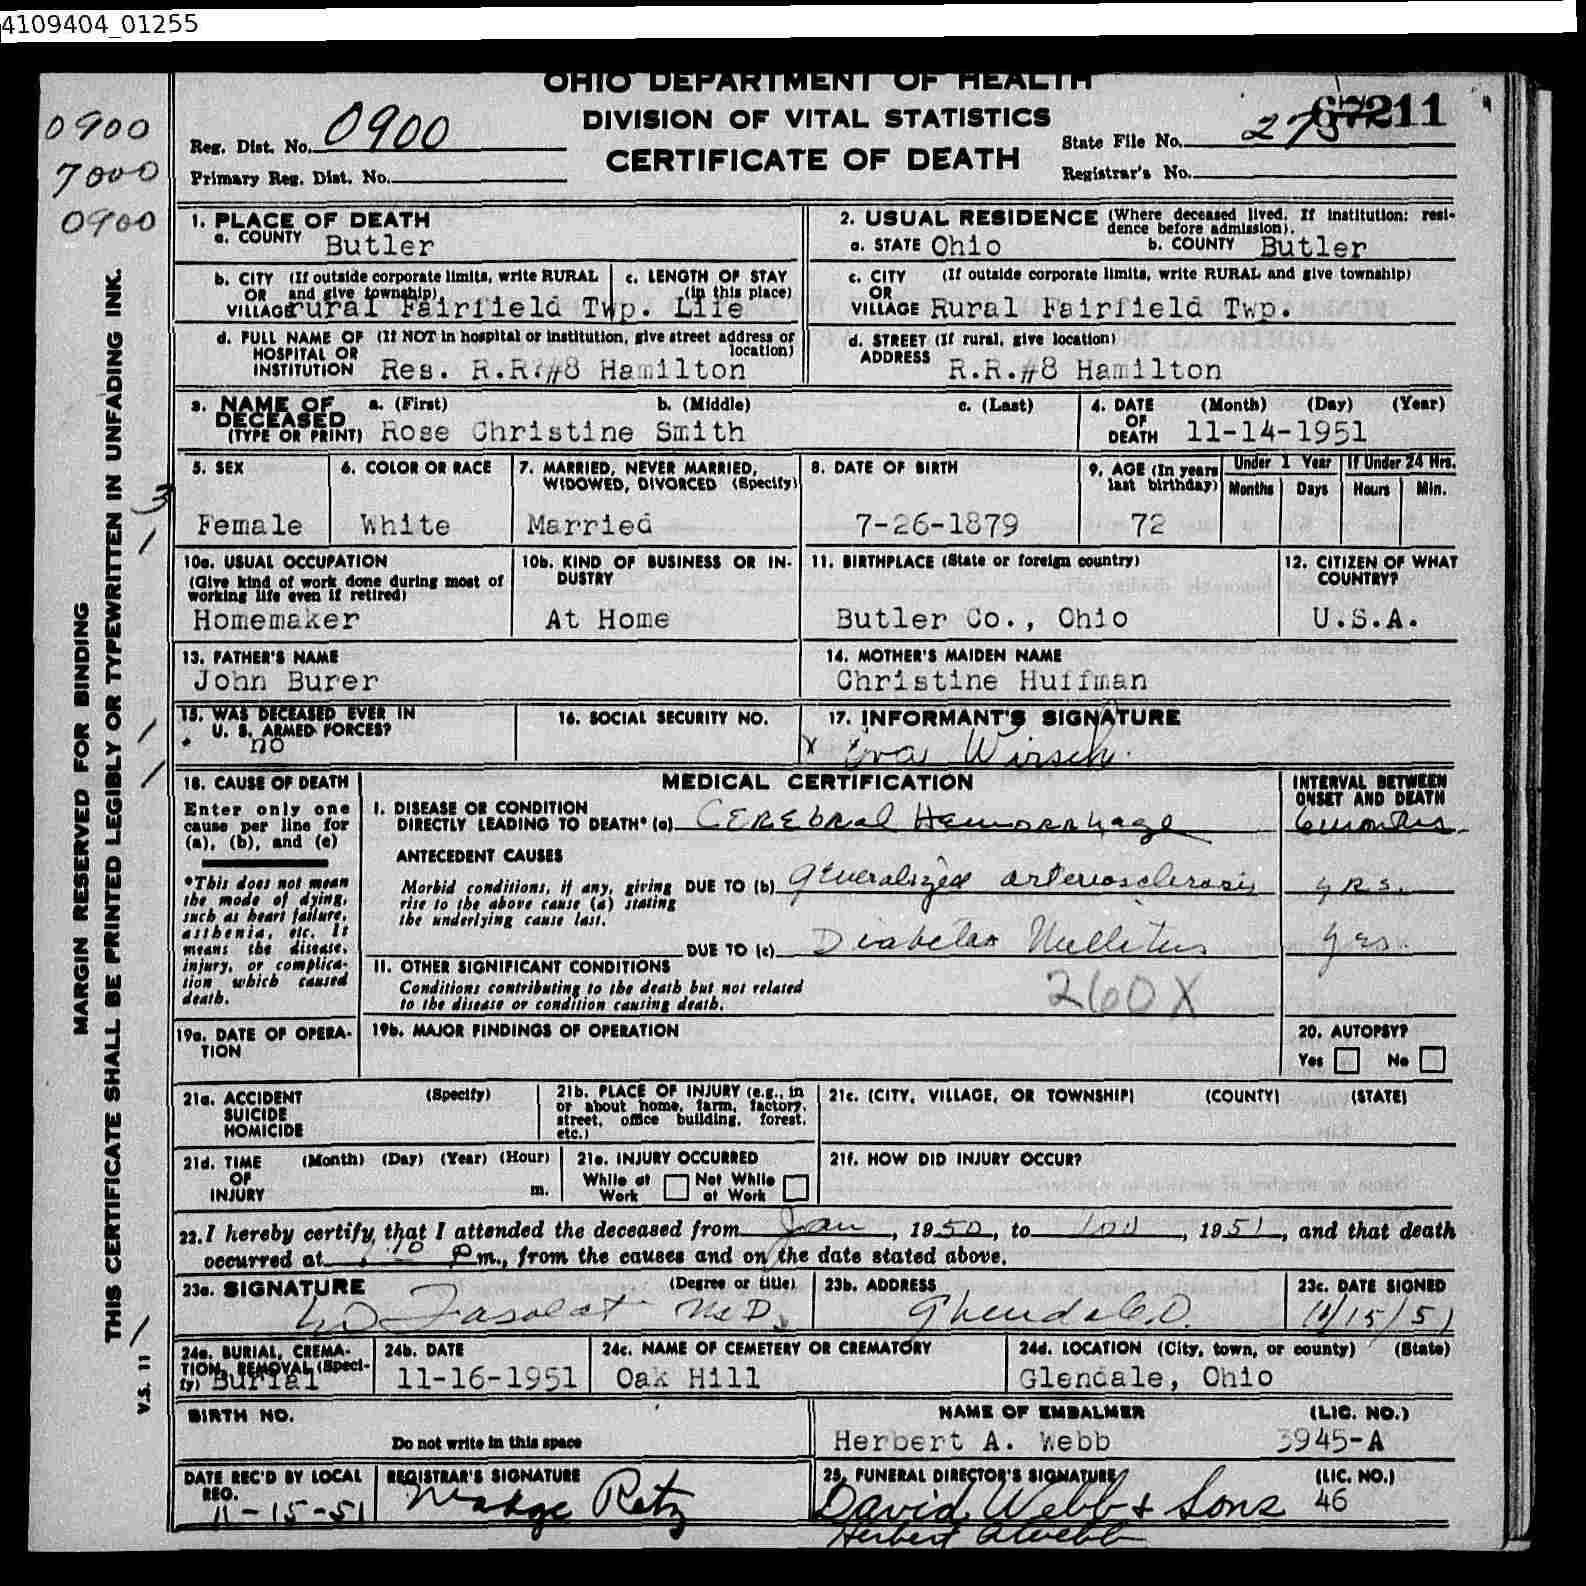 4109404_01255
OHIO DEPARTMENT OF HEALTH
DIVISION OF VITAL STATISTICS
CERTIFICATE OF DEATH
0900
7000
0900
Reg. Dist. No. 0900
Primary Reg. Dist. No.
67211
State File No.
Registrar's No.
MARGIN RESERVED FOR BINDING
THIS CERTIFICATE SHALL BE PRINTED LEGIBLY OR TYPEWRITTEN IN UNFADING INK.
V.S. 11
3
1. PLACE OF DEATH
a. COUNTY Butler
b. CITY (If outside corporate limits, write RURAL
OR and give township)
VILLAGE rural Fairfield Twp.
c. LENGTH OF STAY
(in this place)
Life
d. FULL NAME OF (If NOT in hospital or institution, give street address or
HOSPITAL OR location)
INSTITUTION Res. R.R.#8 Hamilton
2. USUAL RESIDENCE (Where deceased lived. If institution: resi-
dence before admission).
a. STATE Ohio b. COUNTY Butler
c. CITY (If outside corporate limits, write RURAL and give township)
OR
VILLAGE Rural Fairfield Twp.
d. STREET (If rural, give location)
ADDRESS R.R.#8 Hamilton
3. NAME OF a. (First) b. (Middle) c. (Last)
DECEASED
(TYPE OR PRINT) Rose Christine Smith
4. DATE (Month) (Day) (Year)
OF
DEATH 11-14-1951
5. SEX
Female
6. COLOR OR RACE
White
7. MARRIED, NEVER MARRIED,
WIDOWED, DIVORCED (Specify)
Married
8. DATE OF BIRTH
7-26-1879
9. AGE (In years
last birthday)
72
Under 1 Year
Months Days
If Under 24 Hrs.
Hours Min.
10a. USUAL OCCUPATION
(Give kind of work done during most of
working life even if retired)
Homemaker
10b. KIND OF BUSINESS OR IN-
DUSTRY
At Home
11. BIRTHPLACE (State or foreign country)
Butler Co., Ohio
12. CITIZEN OF WHAT
COUNTRY?
U.S.A.
13. FATHER'S NAME
John Burer
14. MOTHER'S MAIDEN NAME
Christine Huffman
15. WAS DECEASED EVER IN
U. S. ARMED FORCES?
no
16. SOCIAL SECURITY NO.
17. INFORMANT'S SIGNATURE
x Eva Wirsch
18. CAUSE OF DEATH
Enter only one
cause per line for
(a), (b), and (c)
*This does not mean
the mode of dying,
such as heart failure,
asthenia, etc. It
means the disease,
injury, or complica-
tion which caused
death.
MEDICAL CERTIFICATION
I. DISEASE OR CONDITION
DIRECTLY LEADING TO DEATH* (a) Cerebral Hemorrhage
ANTECEDENT CAUSES
Morbid conditions, if any, giving
rise to the above cause (a) stating
the underlying cause last.
DUE TO (b) Generalized arteriosclerosis
DUE TO (c) Diabetes Mellitus
II. OTHER SIGNIFICANT CONDITIONS
Conditions contributing to the death but not related
to the disease or condition causing death.
260X
INTERVAL BETWEEN
ONSET AND DEATH
6 months
yrs.
yrs.
19a. DATE OF OPERA-
TION
19b. MAJOR FINDINGS OF OPERATION
20. AUTOPSY?
Yes No
21a. ACCIDENT (Specify)
SUICIDE
HOMICIDE
21b. PLACE OF INJURY (e.g., in
or about home, farm, factory,
street, office building, forest,
etc.)
21c. (CITY, VILLAGE, OR TOWNSHIP) (COUNTY) (STATE)
21d. TIME (Month) (Day) (Year) (Hour)
OF
INJURY m.
21e. INJURY OCCURRED
While at Work Not While at Work
21f. HOW DID INJURY OCCUR?
22. I hereby certify, that I attended the deceased from Jan, 1950, to Nov, 1951, and that death
occurred at P m., from the causes and on the date stated above.
23a. SIGNATURE (Degree or title)
M.D.
23b. ADDRESS
Glendale O.
23c. DATE SIGNED
11/15/51
24a. BURIAL, CREMA-
TION, REMOVAL (Speci-
fy) Burial
24b. DATE
11-16-1951
24c. NAME OF CEMETERY OR CREMATORY
Oak Hill
24d. LOCATION (City, town, or county) (State)
Glendale, Ohio
BIRTH NO.
Do not write in this space
NAME OF EMBALMER (LIC. NO.)
Herbert A. Webb 3945-A
DATE REC'D BY LOCAL
REG.
11-15-51
REGISTRAR'S SIGNATURE
Madge Retz
25. FUNERAL DIRECTOR'S SIGNATURE (LIC. NO.)
David Webb & Sons 46
Herbert A Webb